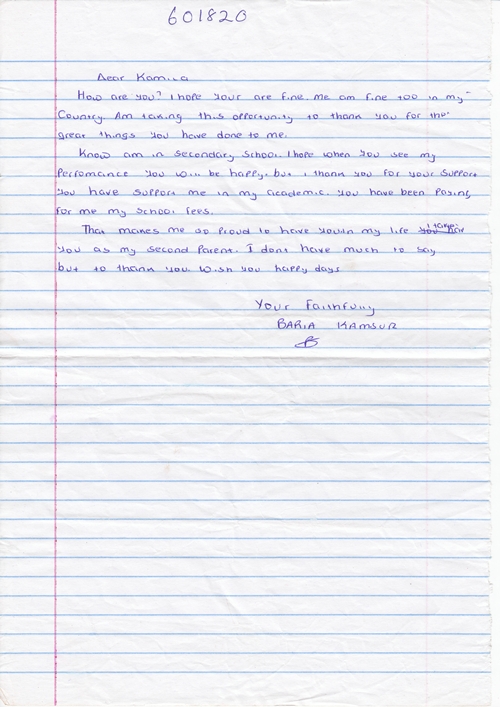 601820
Dear Kamila
How are you? I hope your are fine. Me am fine too in my
Country. Am taking this opportunity to thank you for the
great things you have done to me.
Know am in secondary school. I hope when you see my
Perfomance you will be happy. but i thank you for your support
you have support me in my academic. you have been Paying
for me my school fees.
That makes me so Proud to have you in my life I take
you as my second Parent. I dont have much to say
but to thank you. Wish you happy days
Your Faithfully
BARIA KAMSUR